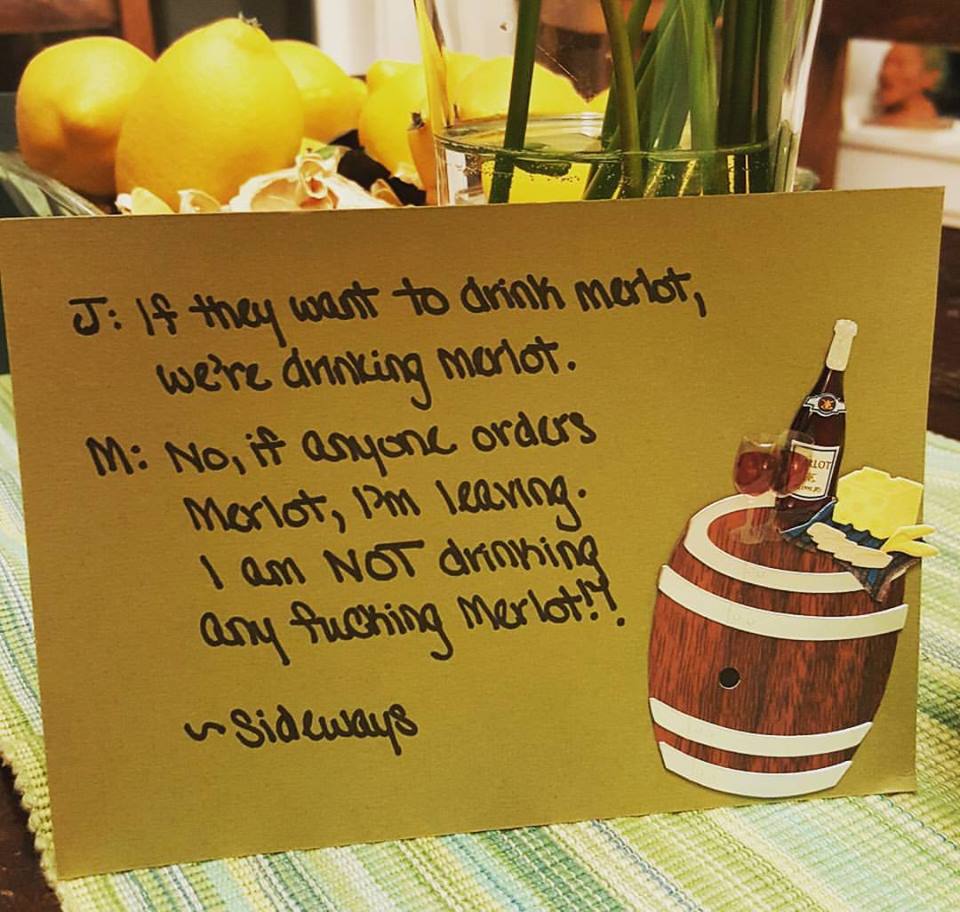 J: If they want to drink merlot,
we're drinking merlot.
M: No, if anyone orders
Merlot, I'm leaving.
I am NOT drinking
any fucking Merlot!!
~Sideways